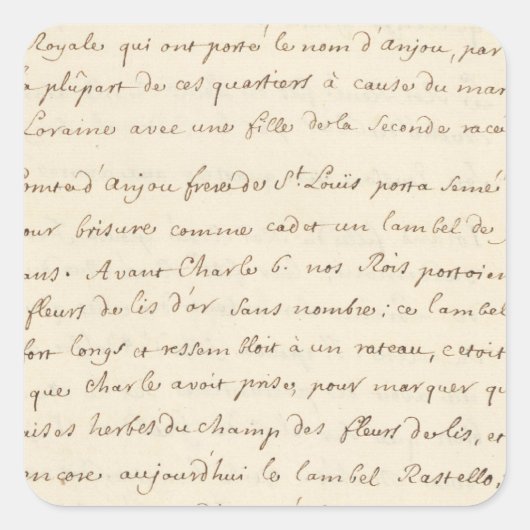 Royale qui ont porté le nom d'Anjou, par
a plûpart de ces quartiers à cause du mar
Loraine avec une fille de la seconde race
omte d'Anjou frere de St. Loüis porta semé
our brisure comme cadet un lambel de
ans. Avant Charle 6. nos Rois portoien
fleurs de lis d'or sans nombre; ce lambel
fort longs et ressembloit à un rateau, cetoit
que Charle avoit prise, pour marquer qu
aises herbes du champ des fleurs de lis, et
encore aujourd'hui le lambel Rastello,